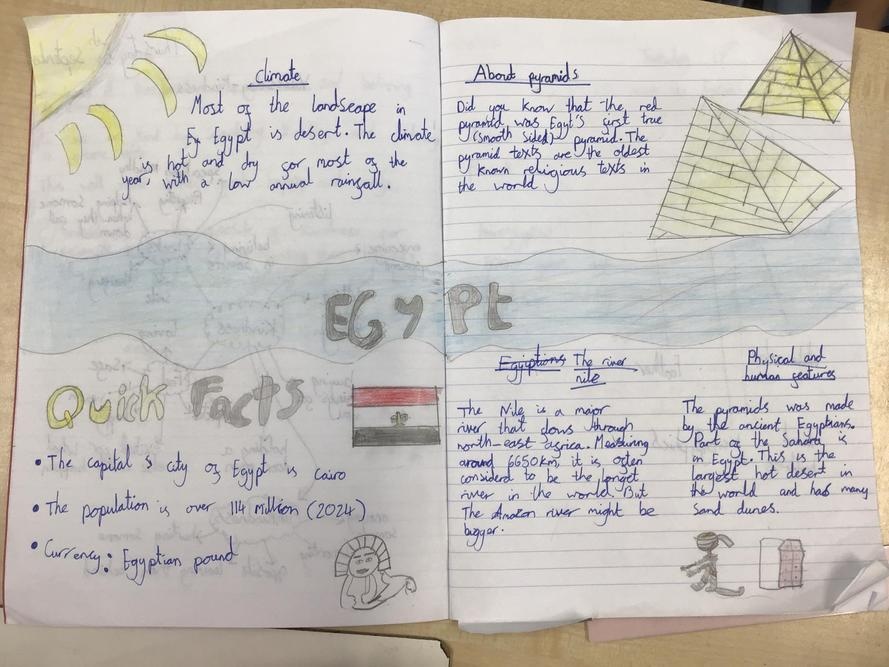 Climate
Most of the landscape in
Ex Egypt is desert. The climate
is hot and dry for most of the
year, with a low annual rainfall.
About pyramids
Did you know that the red
pyramid was Egyt's first true
(smooth sided) pyramid. The
pyramid texts are the oldest
known religious texts in
the world
EGYPt
Quick Facts
• The capital s city of Egypt is cairo
• The population is over 114 Million (2024)
• Currency: Egyptian pound
Egyiptions The river
nile
The Nile is a major
river that flows through
north-east africa. Measuring
around 6650km, it is often
considerd to be the longet
river in the world. But
The Amazon river might be
bigger.
Physical and
human features
The pyramids was made
by the ancient Egyptians.
Part of the Sahara is
in Egypt. This is the
largest hot desert in
the world and has many
Sand dunes.